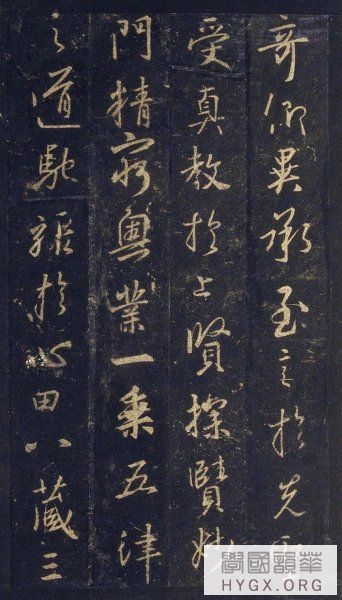 奇仰異承至言於先聖
受真教於上賢探賾妙
門精窮奧業一乘五律
之道馳驟於心田八藏三
學國韻華
HYGX.ORG